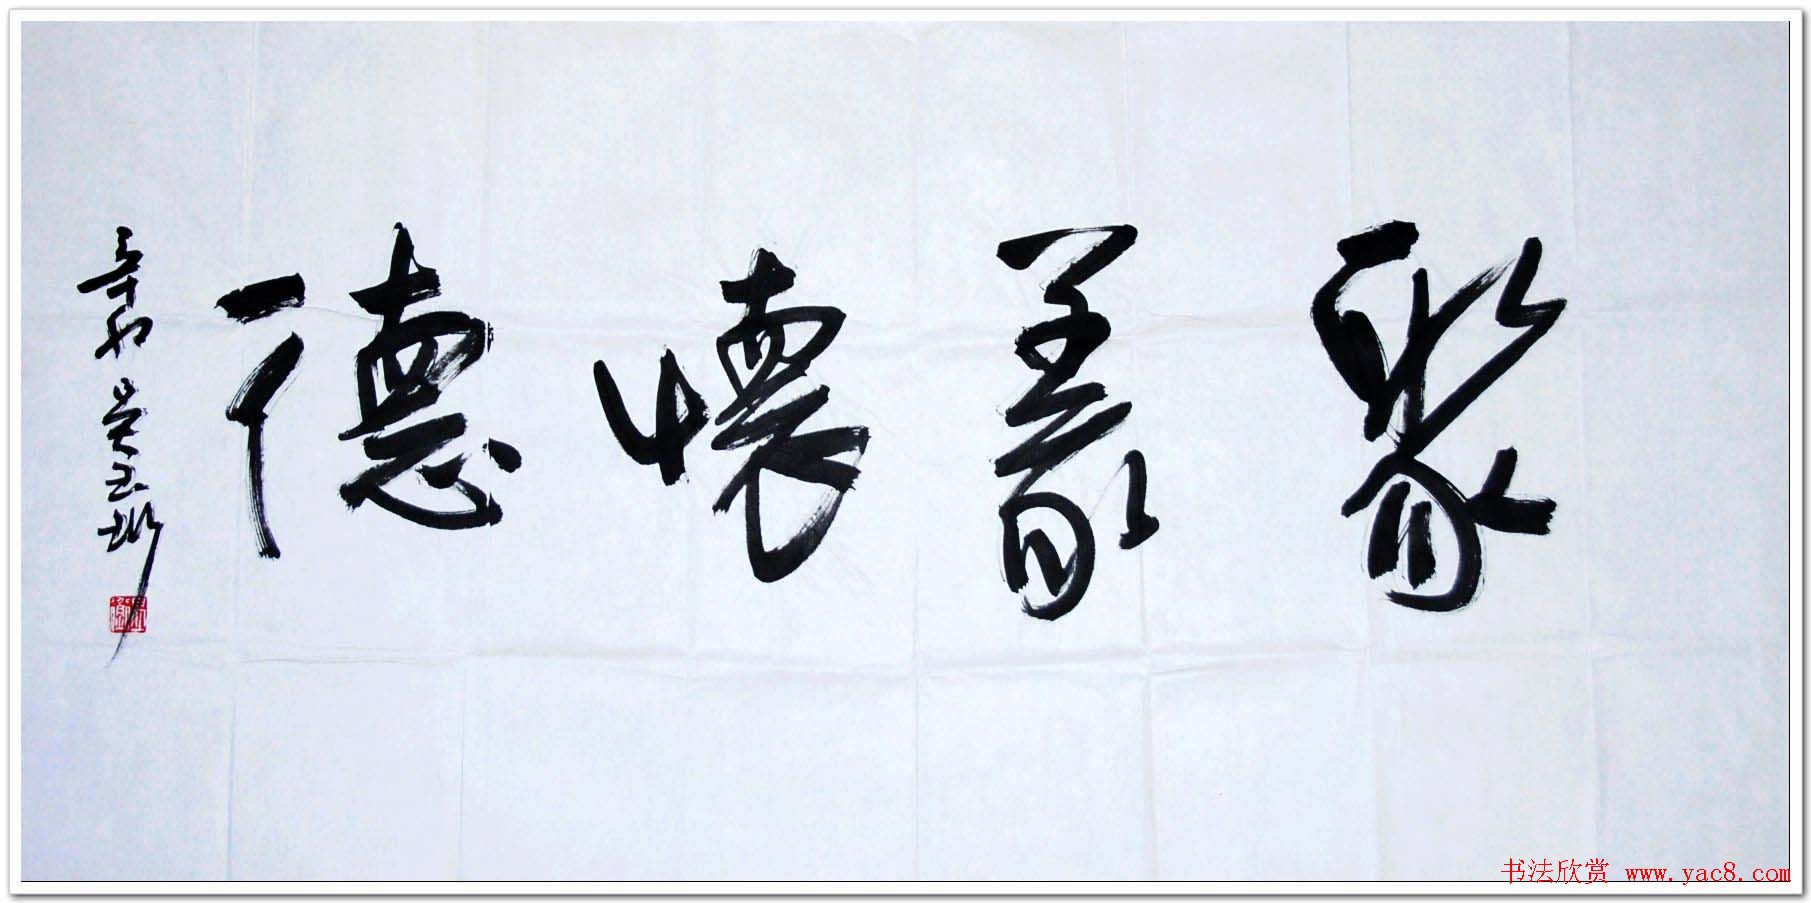 聚義懷德
辛卯 吴玉
书法欣赏 www.yac8.com